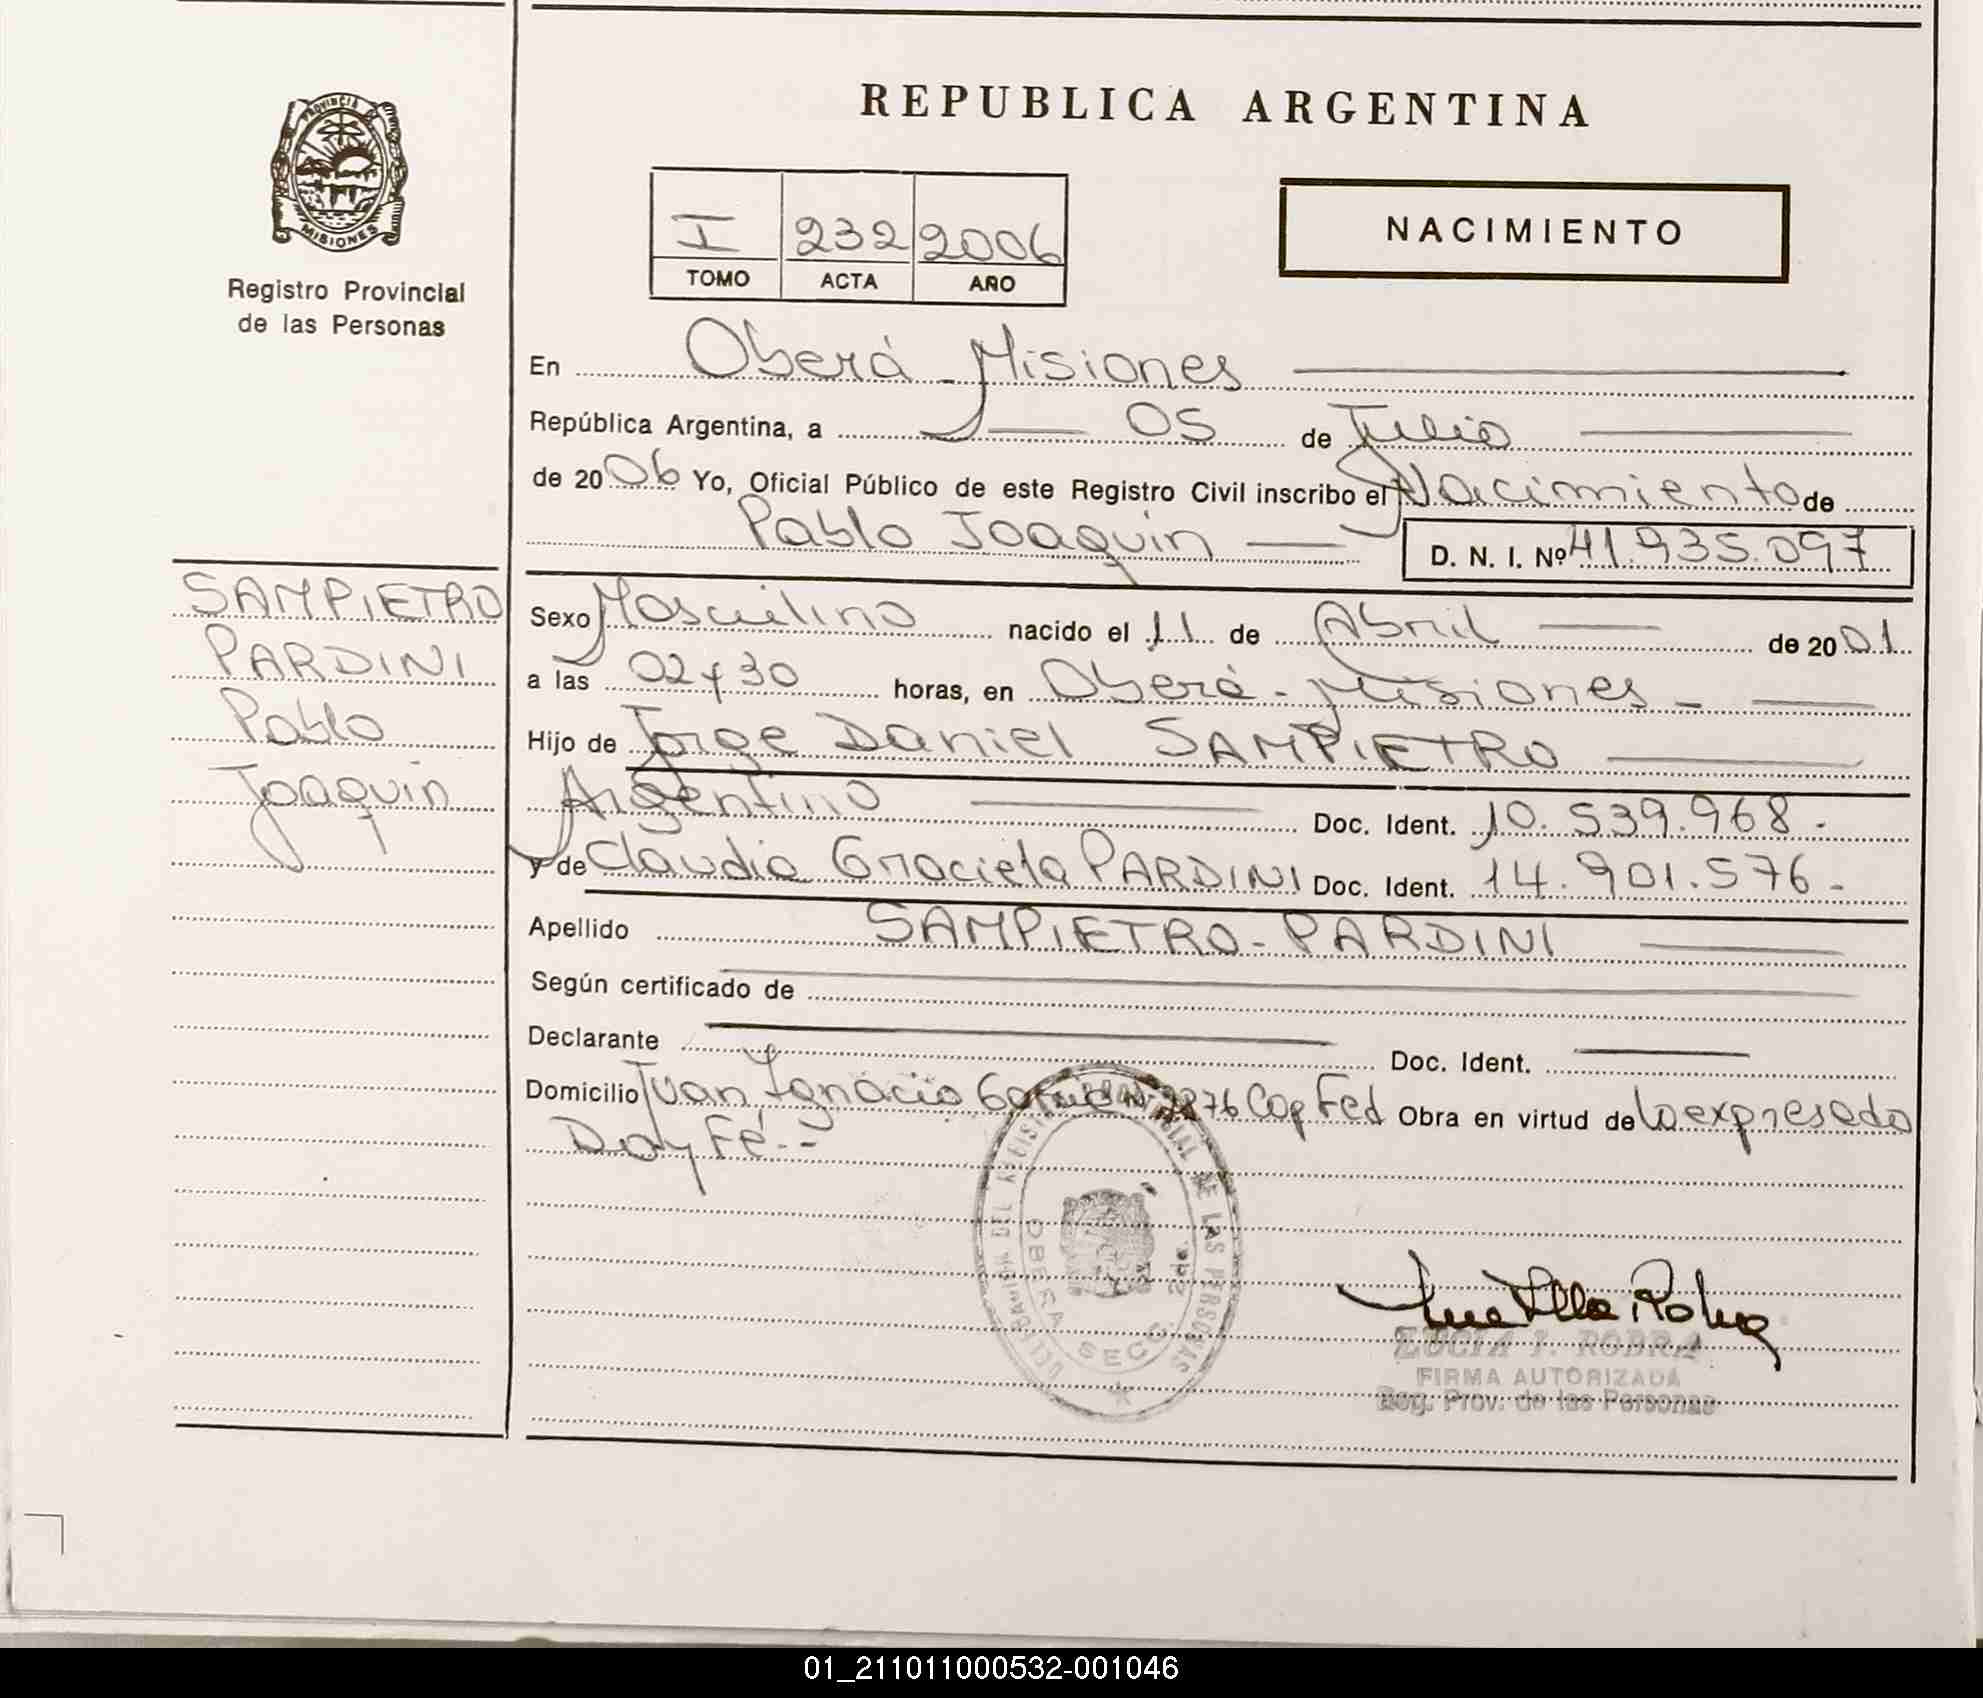 REPUBLICA ARGENTINA
PROVINCIA
MISIONES
Registro Provincial
de las Personas
I 232 2006
TOMO ACTA AÑO
NACIMIENTO
En Oberá Misiones
República Argentina, a 05 de Julio
de 2006 Yo, Oficial Público de este Registro Civil inscribo el Nacimiento de
Pablo Joaquin D. N. I. Nº 41.935.097
SAMPIETRO
PARDINI
Pablo
Joaquin
Sexo Masculino nacido el 11 de Abril de 2001
a las 02 y 30 horas, en Oberá - Misiones -
Hijo de Jorge Daniel SAMPIETRO
Argentino Doc. Ident. 10.539.968.-
y de Claudia Graciela PARDINI Doc. Ident. 14.901.576-
Apellido SAMPIETRO-PARDINI
Según certificado de
Declarante Doc. Ident.
Domicilio Juan Ignacio Cap Fed Obra en virtud de lo expresado
Doy Fé.-
OBERA SECC. 2da.
DE LAS PERSONAS
LUCIA I. ROBRA
FIRMA AUTORIZADA
Reg. Prov. de las Personas
01_211011000532-001046